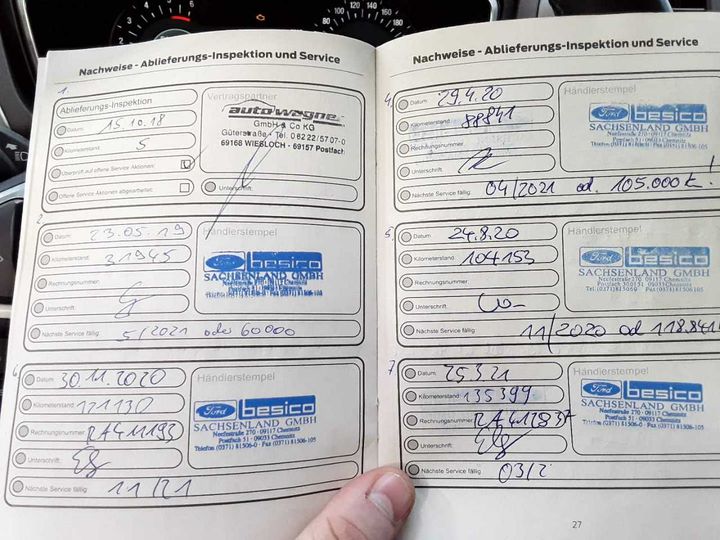 Nachweise - Ablieferungs-Inspektion und Service
1.
Ablieferungs-Inspektion
Datum: 15.10.18
Kilometerstand: 5
Überprüft auf offene Service Aktionen:
Offene Service Aktionen abgearbeitet:
Vertragspartner
auto-wagner
GmbH & Co KG
Güterstraße · Tel. 0 62 22/57 07-0
69168 WIESLOCH - 69157 Postfach
Unterschrift:
2
Datum: 23.05.19
Kilometerstand: 31945
Rechnungsnummer:
Unterschrift:
Nächste Service fällig: 5/2021 oder 60000
Händlerstempel
Ford besico
SACHSENLAND GMBH
6
Datum: 30.11.2020
Kilometerstand: 121130
Rechnungsnummer: RA411193
Unterschrift:
Nächste Service fällig: 11/21
Händlerstempel
Ford besico
SACHSENLAND GMBH
Neefestraße 270 · 09117 Chemnitz
Postfach 51 · 09033 Chemnitz
Telefon (0371) 81506-0 · Fax (0371) 81506-105
Nachweise - Ablieferungs-Inspektion und Service
4.
Datum: 29.4.20
Kilometerstand: 88841
Rechnungsnummer:
Unterschrift:
Nächste Service fällig: 04/2021 od. 105.000 !
Händlerstempel
Ford besico
SACHSENLAND GMBH
Neefestraße 270 · 09117 Chemnitz
5.
Datum: 24.8.20
Kilometerstand: 104153
Rechnungsnummer:
Unterschrift:
Nächste Service fällig: 11/2020 od 118.841
Händlerstempel
Ford besico
SACHSENLAND GMBH
Neefestraße 270 · 09117 Chemnitz
7
Datum: 25.3.21
Kilometerstand: 135399
Rechnungsnummer: RA411837
Unterschrift:
Nächste Service fällig: 03/2
Händlerstempel
Ford besico
SACHSENLAND GMBH
Neefestraße 270 · 09117 Chemnitz
Postfach 51 · 09033 Chemnitz
Telefon (0371) 81506-0 · Fax (0371) 81506-105
27